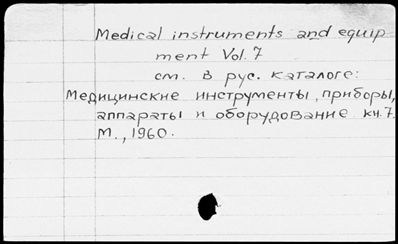 Medical instruments and equip
ment Vol. 7
см. в рус. каталоге:
Медицинские инструменты, приборы,
аппараты и оборудование кн. 7.
М., 1960.